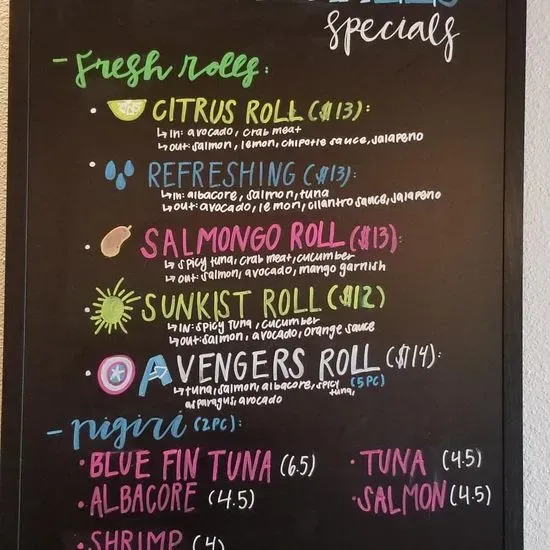 specials
- fresh rolls:
• CITRUS ROLL ($13):
↳ in: avocado, crab meat
↳ out: salmon, lemon, chipotle sauce, jalapeno
• REFRESHING ($13):
↳ in: albacore, salmon, tuna
↳ out: avocado, lemon, cilantro sauce, jalapeno
• SALMONGO ROLL ($13):
↳ spicy tuna, crab meat, cucumber
↳ out: salmon, avocado, mango garnish
• SUNKIST ROLL ($12)
↳ in: spicy tuna, cucumber
↳ out: salmon, avocado, orange sauce
• AVENGERS ROLL ($14):
↳ tuna, salmon, albacore, spicy tuna, (5PC)
asparagus, avocado
- nigiri (2PC):
• BLUE FIN TUNA (6.5) • TUNA (4.5)
• ALBACORE (4.5) • SALMON (4.5)
• SHRIMP (4)